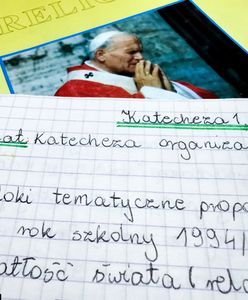 RELIG
Katecheza 1.
at Katecheza organiza
loki tematyczne prop
rok szkolny 1994/
ałość świata (rel